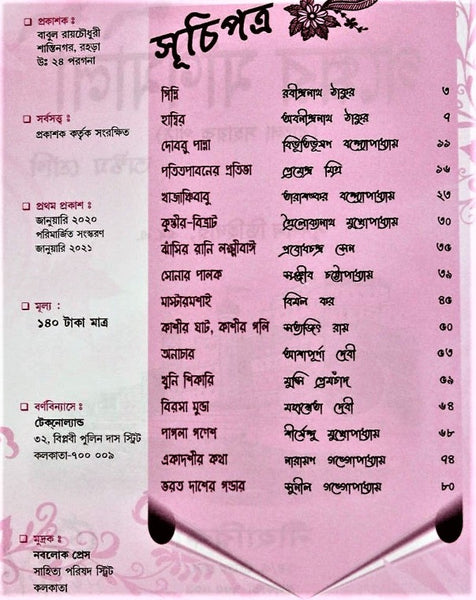 সূচিপত্র
❑ প্রকাশক ঃ
বাবুল রায়চৌধুরী
শান্তিনগর, রহড়া
উঃ ২৪ পরগনা
❑ সর্বসত্ত্ব ঃ
প্রকাশক কর্তৃক সংরক্ষিত
❑ প্রথম প্রকাশ ঃ
জানুয়ারি ২০২০
পরিমার্জিত সংস্করণ
জানুয়ারি ২০২১
❑ মূল্য :
১৪০ টাকা মাত্র
❑ বর্ণবিন্যাসে ঃ
টেকনোল্যান্ড
৩২, বিপ্লবী পুলিন দাস স্ট্রিট
কলকাতা-৭০০ ০০৯
❑ মুদ্রক ঃ
নবলোক প্রেস
সাহিত্য পরিষদ স্ট্রিট
কলকাতা
গিন্নি রবীন্দ্রনাথ ঠাকুর ৩
হাম্বির অবনীন্দ্রনাথ ঠাকুর ৭
দোবরু পান্না বিভূতিভূষণ বন্দ্যোপাধ্যায় ১১
পতিতপাবনের প্রতিভা প্রেমেন্দ্র মিত্র ১৬
খাজাঞ্চিবাবু তারাশঙ্কর বন্দ্যোপাধ্যায় ২৩
কুম্ভীর-বিভ্রাট ত্রৈলোক্যনাথ মুখোপাধ্যায় ৩০
ঝাঁসির রানি লক্ষ্মীবাঈ প্রবোধচন্দ্র সেন ৩৫
সোনার পালক সঞ্জীব চট্টোপাধ্যায় ৩৯
মাস্টারমশাই বিমল কর ৪৫
কাশীর ঘাট, কাশীর গলি সত্যজিৎ রায় ৫০
অনাচার আশাপূর্ণা দেবী ৫৩
খুনি শিকারি মুন্সি প্রেমচাঁদ ৫৯
বিরসা মুন্ডা মহাশ্বেতা দেবী ৬৪
পাগলা গণেশ শীর্ষেন্দু মুখোপাধ্যায় ৬৮
একাদশীর কথা নারায়ণ গঙ্গোপাধ্যায় ৭৪
ভরত দাশের গন্ডার সুনীল গঙ্গোপাধ্যায় ৮০